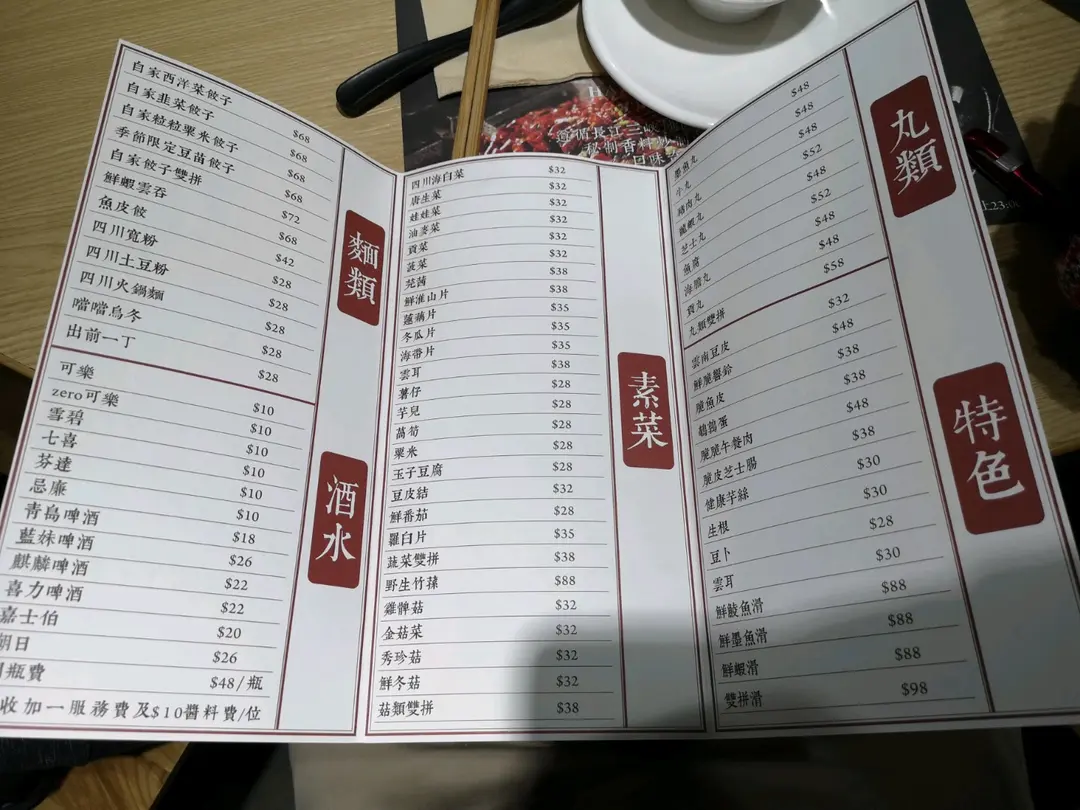 自家西洋菜餃子 $68
自家韭菜餃子 $68
自家粒粒粟米餃子 $68
季節限定豆苗餃子 $68
自家餃子雙拼 $72
鮮蝦雲吞 $68
魚皮餃 $42
四川寬粉 $28
四川土豆粉 $28
四川火鍋麵 $28
噹噹烏冬 $28
出前一丁 $28
麵類
可樂 $10
zero可樂 $10
雪碧 $10
七喜 $10
芬達 $10
忌廉 $10
青島啤酒 $18
藍妹啤酒 $26
麒麟啤酒 $22
喜力啤酒 $22
嘉士伯 $20
朝日 $26
瓶費 $48/瓶
收加一服務費及$10醬料費/位
酒水
四川海白菜 $32
唐生菜 $32
娃娃菜 $32
油麥菜 $32
貢菜 $32
菠菜 $32
芫茜 $38
鮮淮山片 $38
蓮藕片 $35
冬瓜片 $35
海帶片 $35
雲耳 $38
薯仔 $28
芋兒 $28
萵筍 $28
粟米 $28
玉子豆腐 $28
豆皮結 $32
鮮番茄 $28
羅白片 $35
蔬菜雙拼 $38
野生竹蓀 $88
雞髀菇 $32
金菇菜 $32
秀珍菇 $32
鮮冬菇 $32
菇類雙拼 $38
素菜
墨魚丸 $48
小丸 $48
豬肉丸 $48
龍蝦丸 $52
芝士丸 $48
魚腐 $52
海膽丸 $48
貢丸 $48
丸類雙拼 $58
丸類
雲南豆皮 $32
鮮脆響鈴 $48
脆魚皮 $38
鵪鶉蛋 $38
脆脆午餐肉 $48
脆皮芝士腸 $38
健康芋絲 $30
生根 $30
豆卜 $28
雲耳 $30
鮮鯪魚滑 $88
鮮墨魚滑 $88
鮮蝦滑 $88
雙拼滑 $98
特色